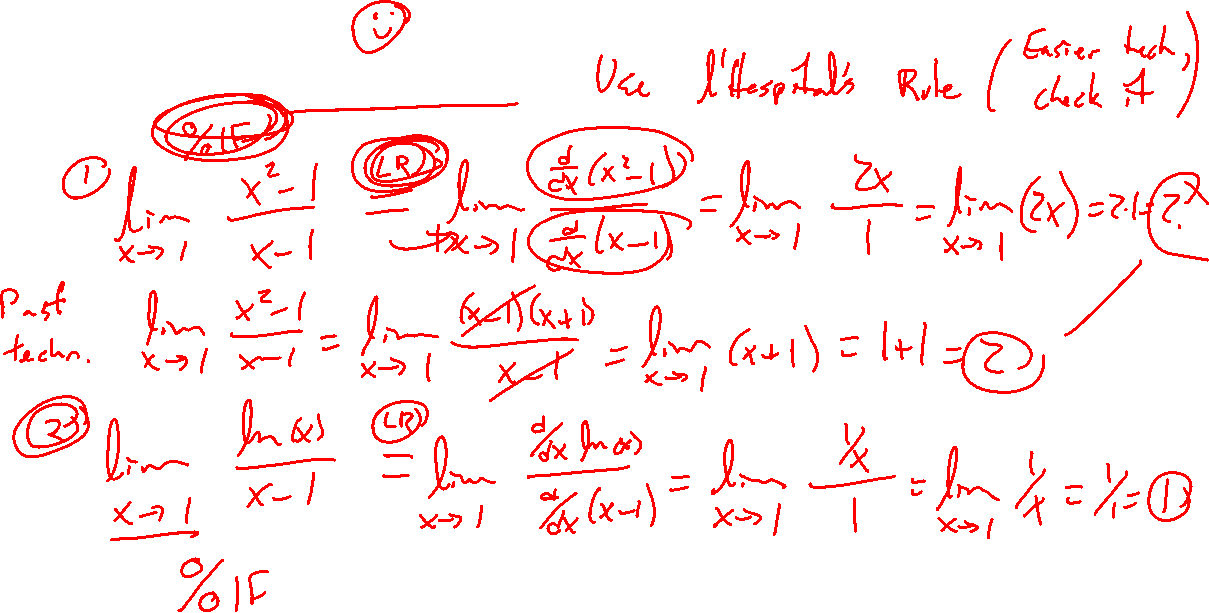 Use l'Hospital's Rule (Easier tech, check it)
0/0 IF
① lim x→1 x²-1 / x-1 =(LR) lim x→1 d/dx (x²-1) / d/dx (x-1) = lim x→1 2x / 1 = lim x→1 (2x) = 2·1 = 2
Past techn. lim x→1 x²-1 / x-1 = lim x→1 (x-1)(x+1) / x-1 = lim x→1 (x+1) = 1+1 = 2
② lim x→1 ln(x) / x-1 =(LR) lim x→1 d/dx ln(x) / d/dx (x-1) = lim x→1 1/x / 1 = lim x→1 1/x = 1/1 = 1
0/0 IF